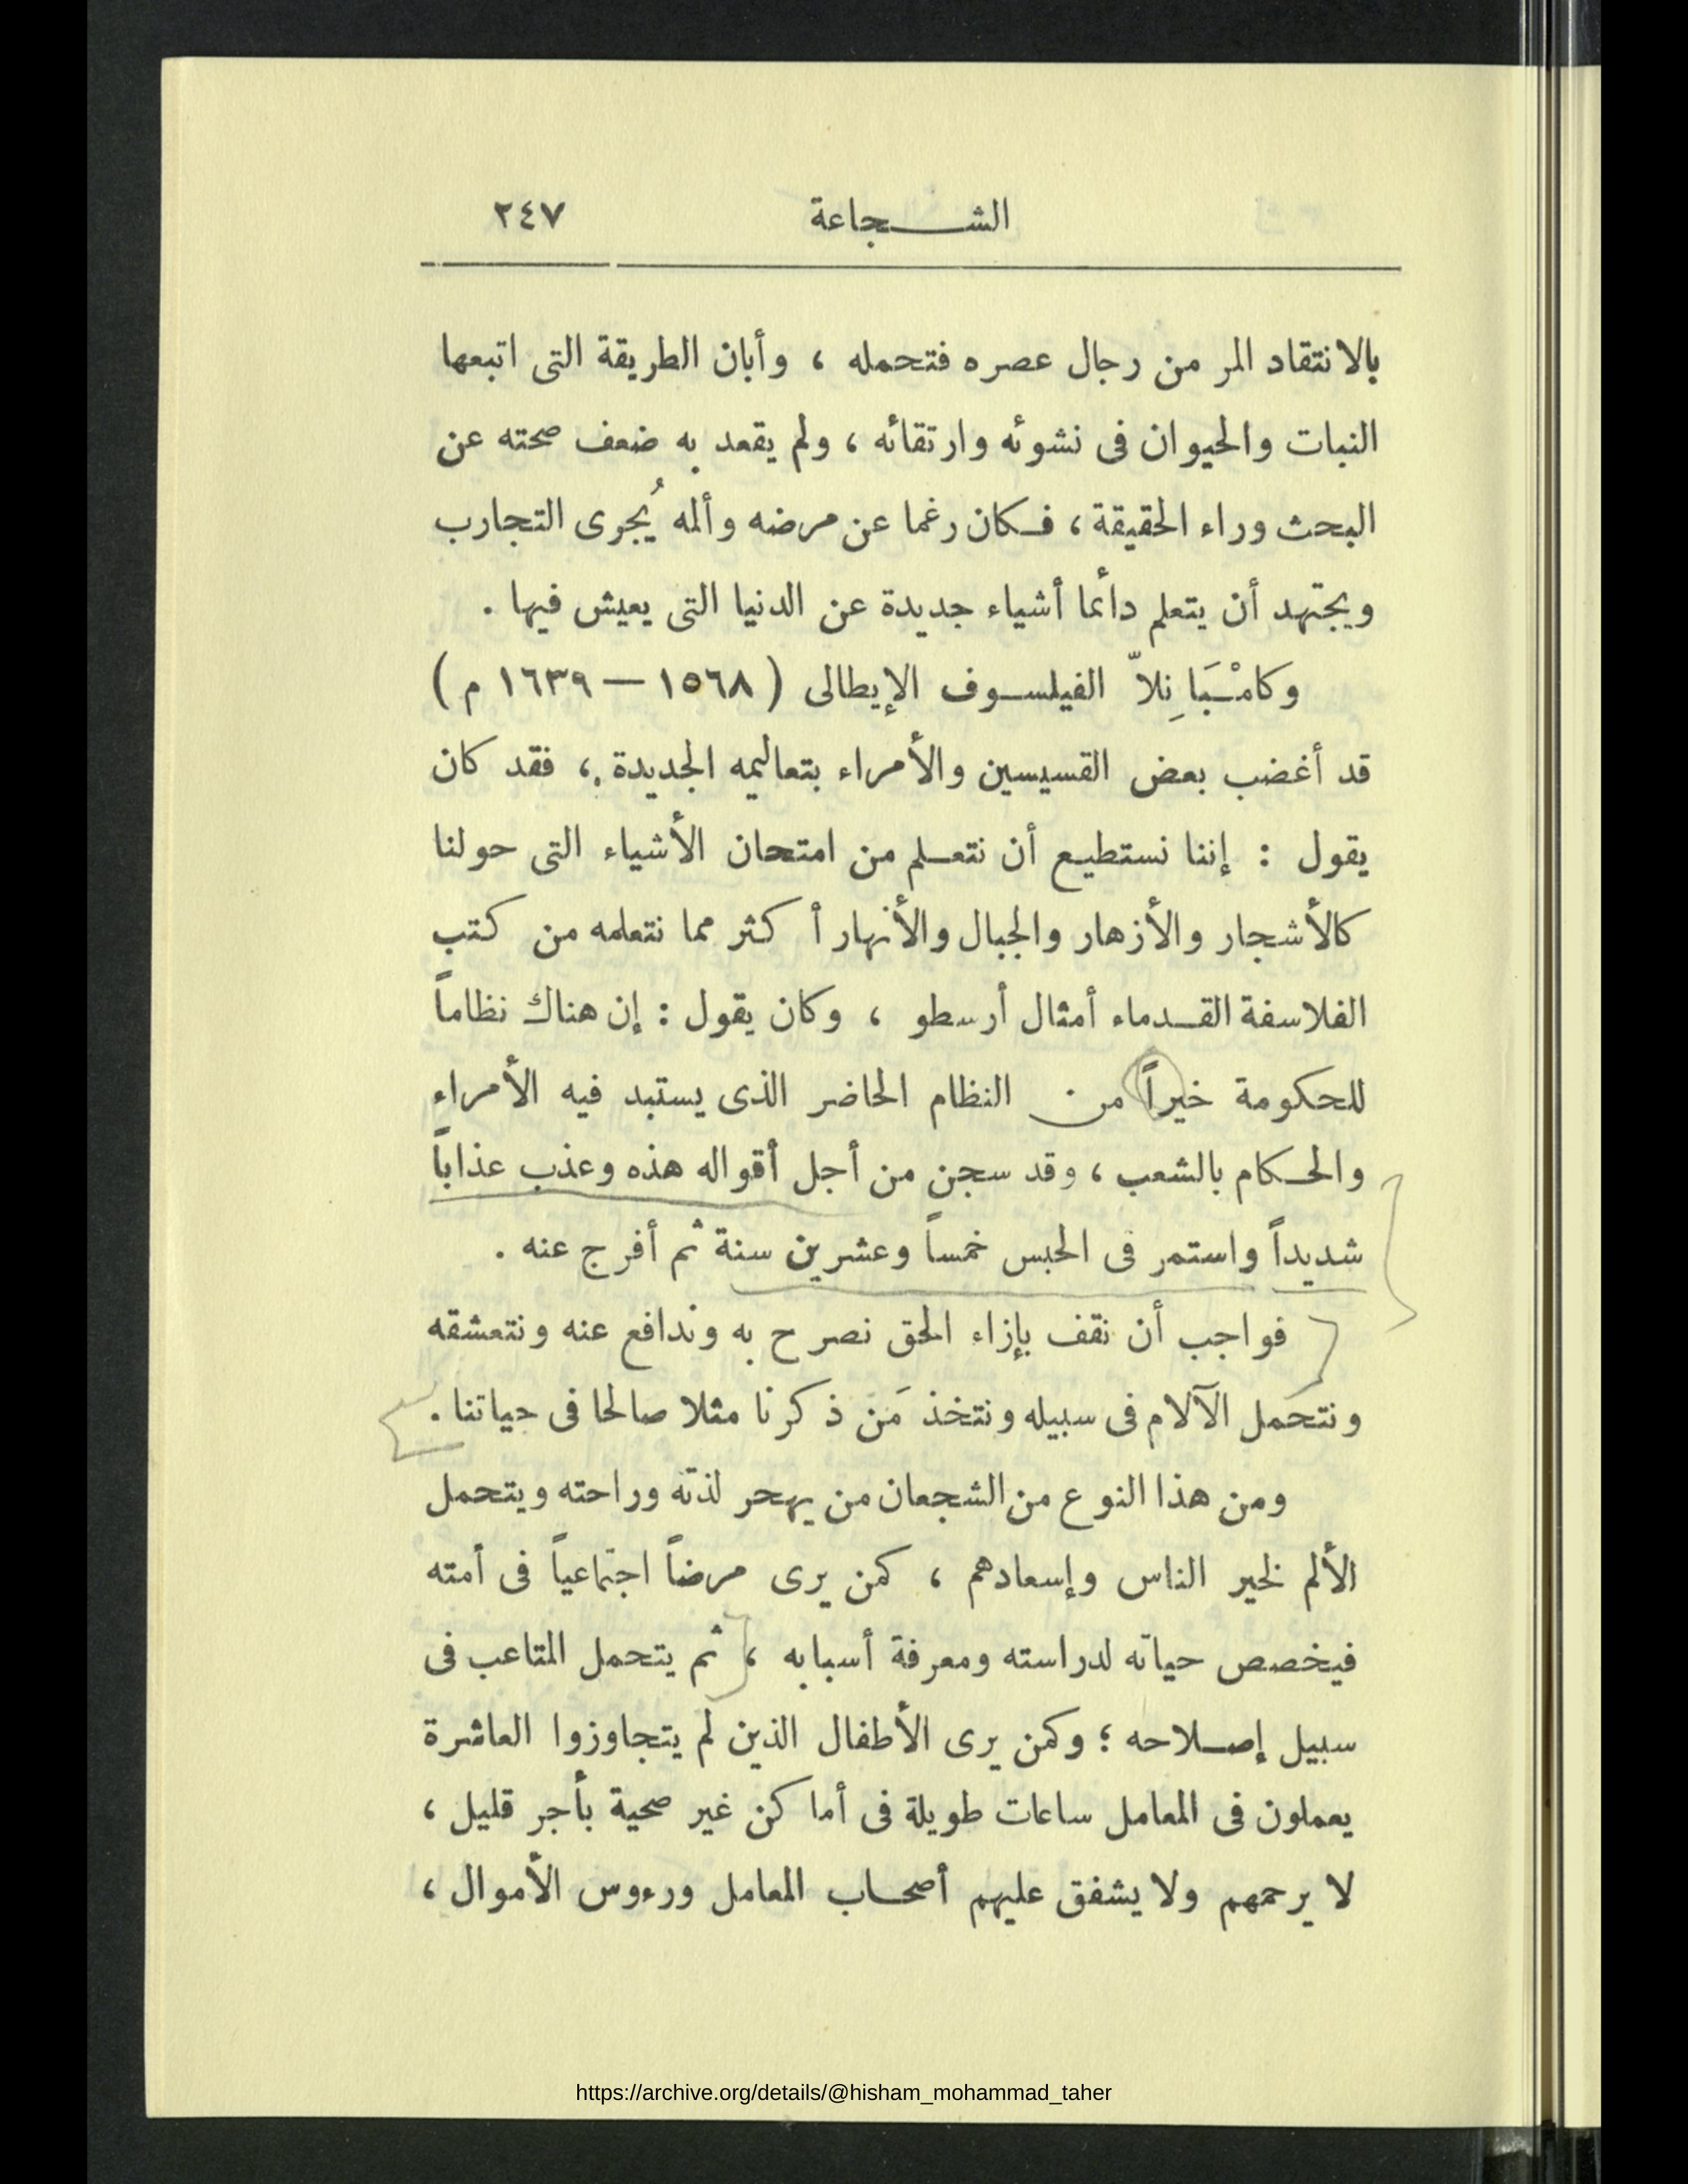 الشجاعة ٢٤٧
بالانتقاد المر من رجال عصره فتحمله ، وأبان الطريقة التى اتبعها
النبات والحيوان فى نشوئه وارتقائه ، ولم يقعد به ضعف صحته عن
البحث وراء الحقيقة ، فكان رغما عن مرضه وألمه يُجرى التجارب
ويجتهد أن يتعلم دائما أشياء جديدة عن الدنيا التى يعيش فيها .
وكامْبَانِلاّ الفيلسوف الإيطالى ( ١٥٦٨ — ١٦٣٩ م )
قد أغضب بعض القسيسين والأمراء بتعاليمه الجديدة ، فقد كان
يقول : إننا نستطيع أن نتعلم من امتحان الأشياء التى حولنا
كالأشجار والأزهار والجبال والأنهار أكثر مما نتعلمه من كتب
الفلاسفة القدماء أمثال أرسطو ، وكان يقول : إن هناك نظاماً
للحكومة خيراً من النظام الحاضر الذى يستبد فيه الأمراء
والحكام بالشعب ، وقد سجن من أجل أقواله هذه وعذب عذاباً
شديداً واستمر فى الحبس خمساً وعشرين سنة ثم أفرج عنه .
فواجب أن نقف بإزاء الحق نصرح به وندافع عنه ونتعشقه
ونتحمل الآلام فى سبيله ونتخذ مَن ذكرنا مثلا صالحا فى حياتنا .
ومن هذا النوع من الشجعان من يهجر لذته وراحته ويتحمل
الألم لخير الناس وإسعادهم ، كمن يرى مرضاً اجتماعياً فى أمته
فيخصص حياته لدراسته ومعرفة أسبابه ، ثم يتحمل المتاعب فى
سبيل إصلاحه ؛ وكمن يرى الأطفال الذين لم يتجاوزوا العاشرة
يعملون فى المعامل ساعات طويلة فى أماكن غير صحية بأجر قليل ،
لا يرحمهم ولا يشفق عليهم أصحاب المعامل ورءوس الأموال ،
https://archive.org/details/@hisham_mohammad_taher